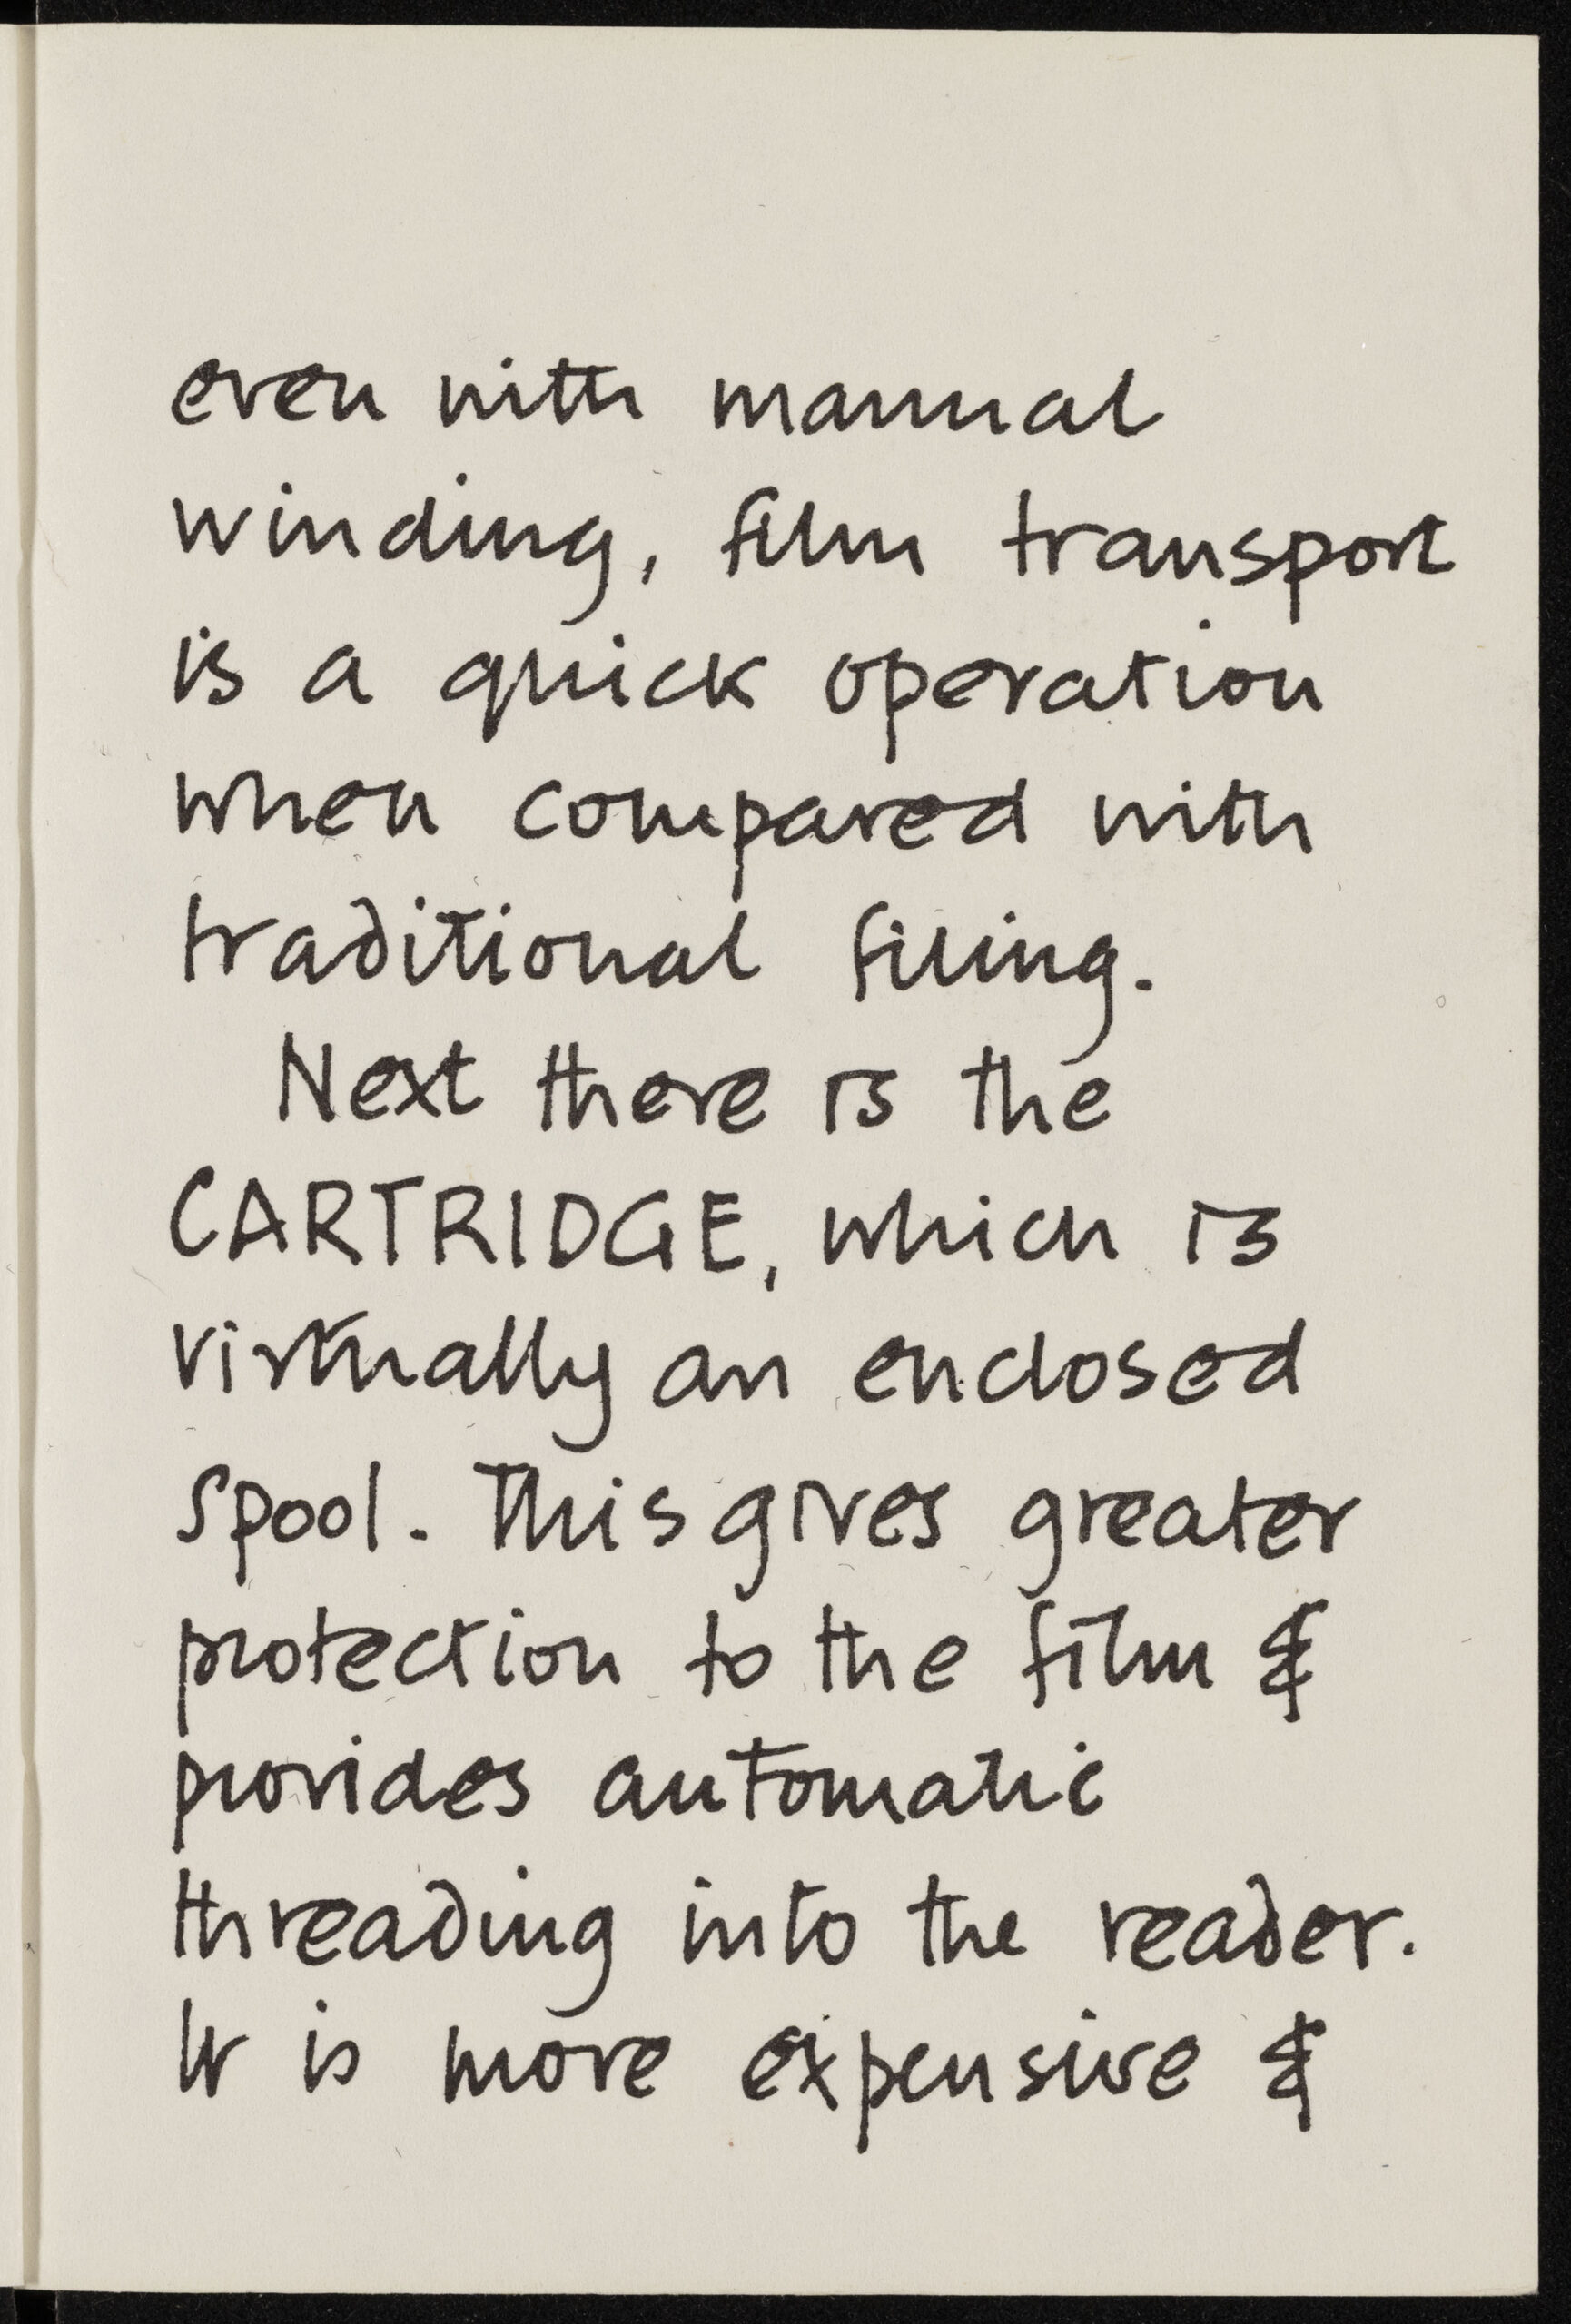 even with manual
winding, film transport
is a quick operation
when compared with
traditional filing.
Next there is the
CARTRIDGE, which is
virtually an enclosed
spool. This gives greater
protection to the film &
provides automatic
threading into the reader.
It is more expensive &